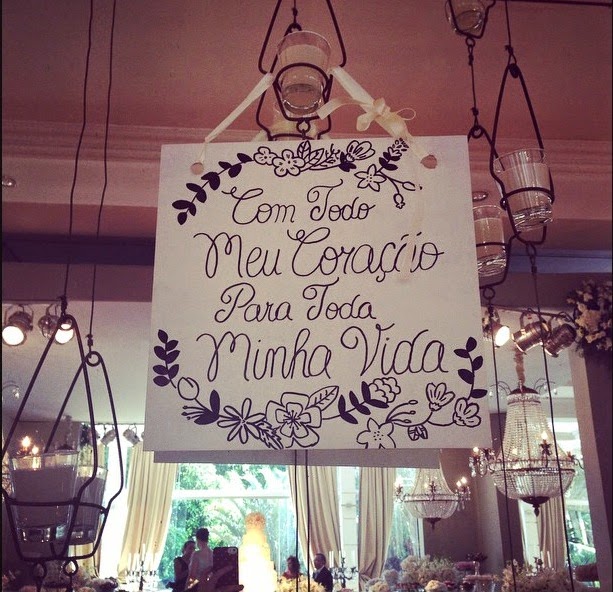 Com Todo
Meu Coração
Para Toda
Minha Vida